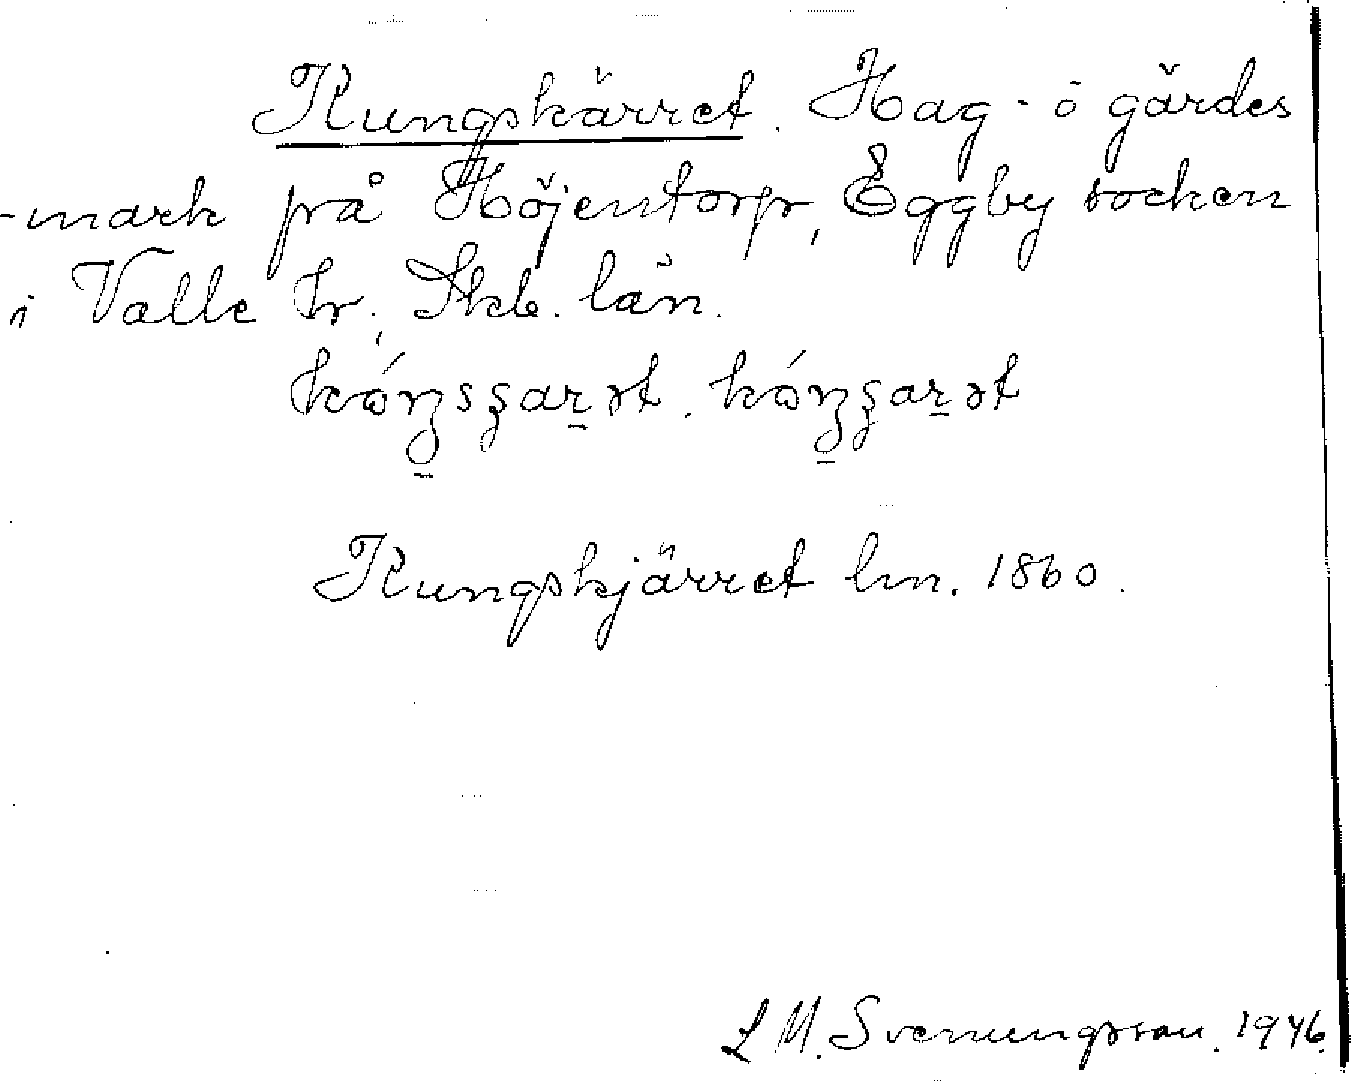 Kungskärret. Hag- ö gärdes
-mark på Höjentorp, Eggby socken
i Valle hr, Skb. län.
kóŋsʂar̠ət. kóŋʂar̠ət
Kungskjärret lm. 1860.
L M. Svenungsson. 1946.